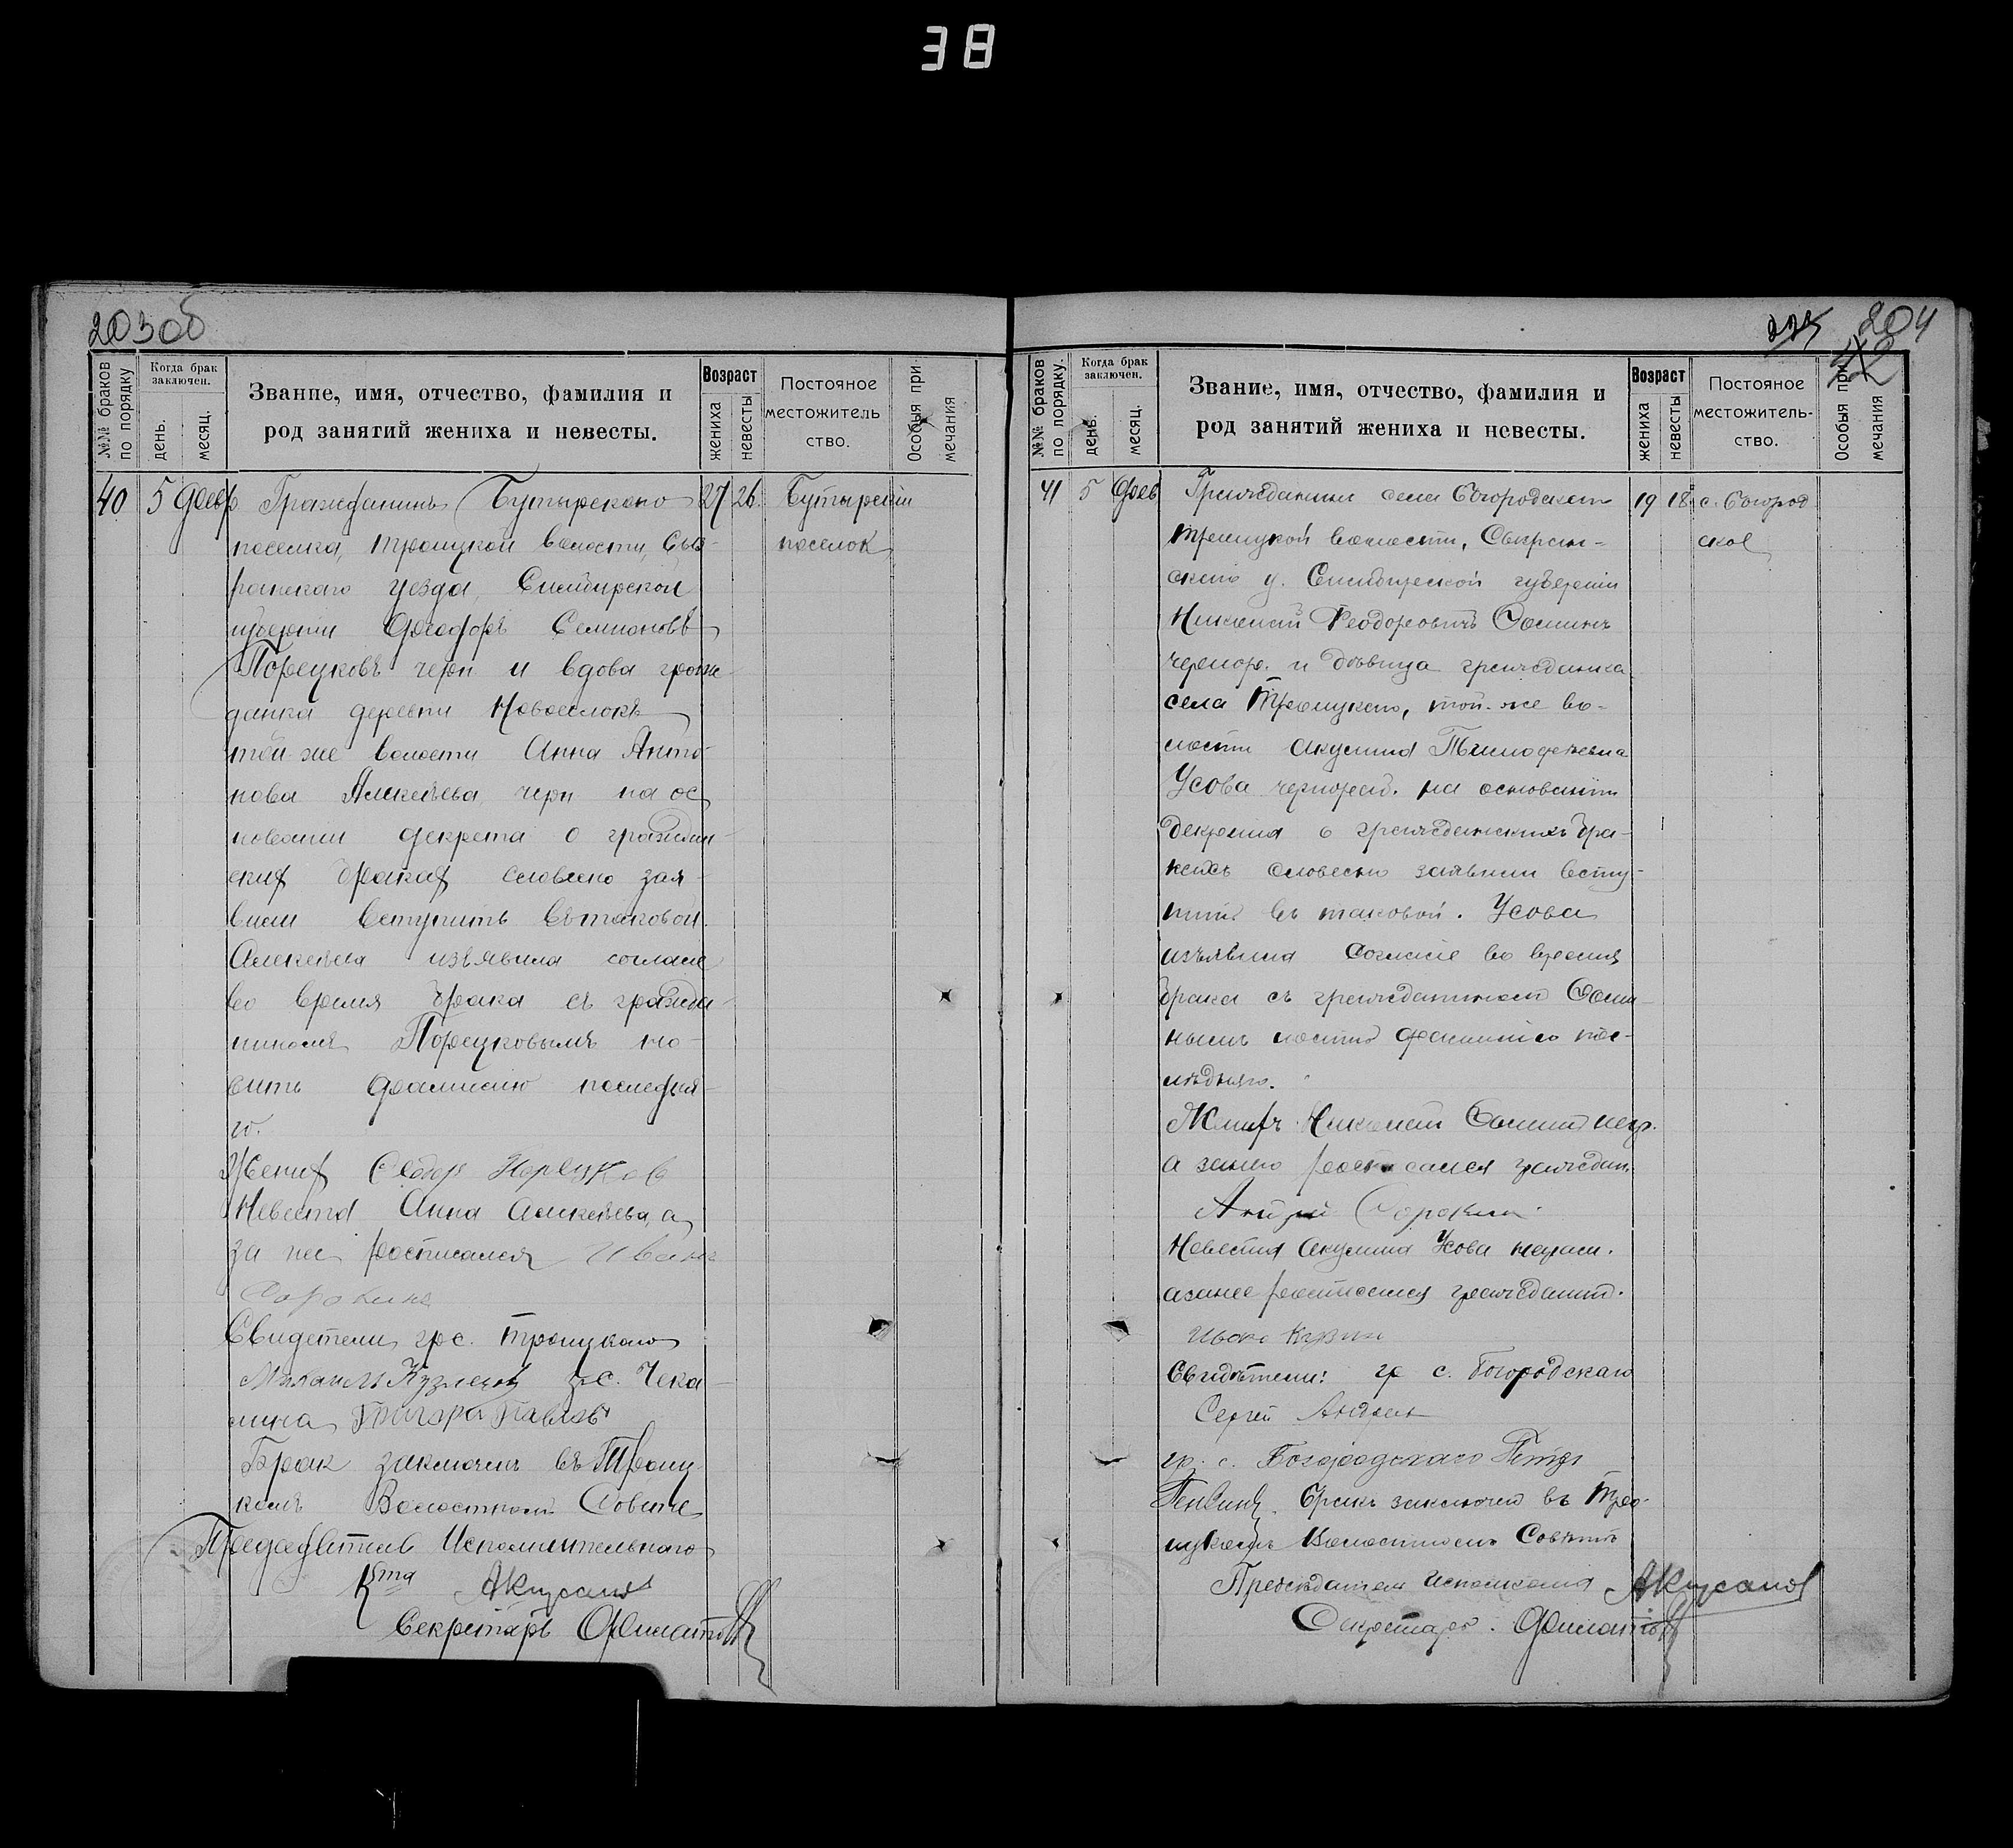 38
203об
№№ браков по порядку
Когда брак заключен.
день.
месяц.
Звание, имя, отчество, фамилия и
род занятий жениха и невесты.
Возраст
жениха
невесты
Постояное
местожитель
ство.
Особыя при-
мечания
40 5 Февр Гражданинъ Бутырскаго 27 26. Бутырскій
поселка, Троицкой волости, Сыз- поселок
ранскаго уезда, Симбирской
губернии Феодоръ Семионовъ
Порецковъ черн и вдова граж-
данка деревни Новоселокъ
той-же волости Анна Анто-
нова Алексеева, черн на ос
новании декрета о граждан-
ских браках словесно зая-
вили вступить въ таковой.
Алексеева изъявила согласие
во время брака съ гражда-
ниномъ Порецковымъ но-
сить фамилию последня-
го.
Жених Федор Порецков
Невеста Анна Алексеева, а
за нее росписался Иванъ
Сорокинъ
Свидетели, гр с. Троицкаго
Михаилъ Кузнецов гр с. Чека-
лина Григори Павловъ
Брак заключенъ въ Троиц-
комъ Волостномъ Совете
Председатель Исполнительнаго
Кта
Секретарь Филиатов
204
№№ браков по порядку.
Когда брак заключен.
день.
месяц.
Звание, имя, отчество, фамилия и
род занятий жениха и невесты.
Возраст
жениха
невесты
Постояное
местожитель-
ство.
Особыя при
мечания
41 5 Фев Гражданин села Богородскаго 19 18 с. Богород
Троицкой волости, Сызран- ское
скаго у. Симбирской губерніи
Николай Феодоровичъ Соминъ
чернор. и девица гражданка
села Троицкаго, той-же во-
лости Акулина Тимофеевна
Усова чернораб. на основании
декрета о гражданскихъ бра-
кахъ словесно заявили всту-
пить въ таковой. Усова
изъявила согласіе во время
брака съ гражданином Соми-
нымъ носить фамилію пос-
ледняго.
Жених Николай Сомин негр.
а занего росписался граждан.
Андрей Сорокин
Невеста Акулина Усова неграм.
азанее росписался гражданин.
Свидетели: гр с. Богородскаго
Сергей
гр. с. Богородскаго Петръ
Брак заключен въ Тро-
ицкомъ Волостномъ Совете
Председатель Исполкома
Секретарь. Филиатов